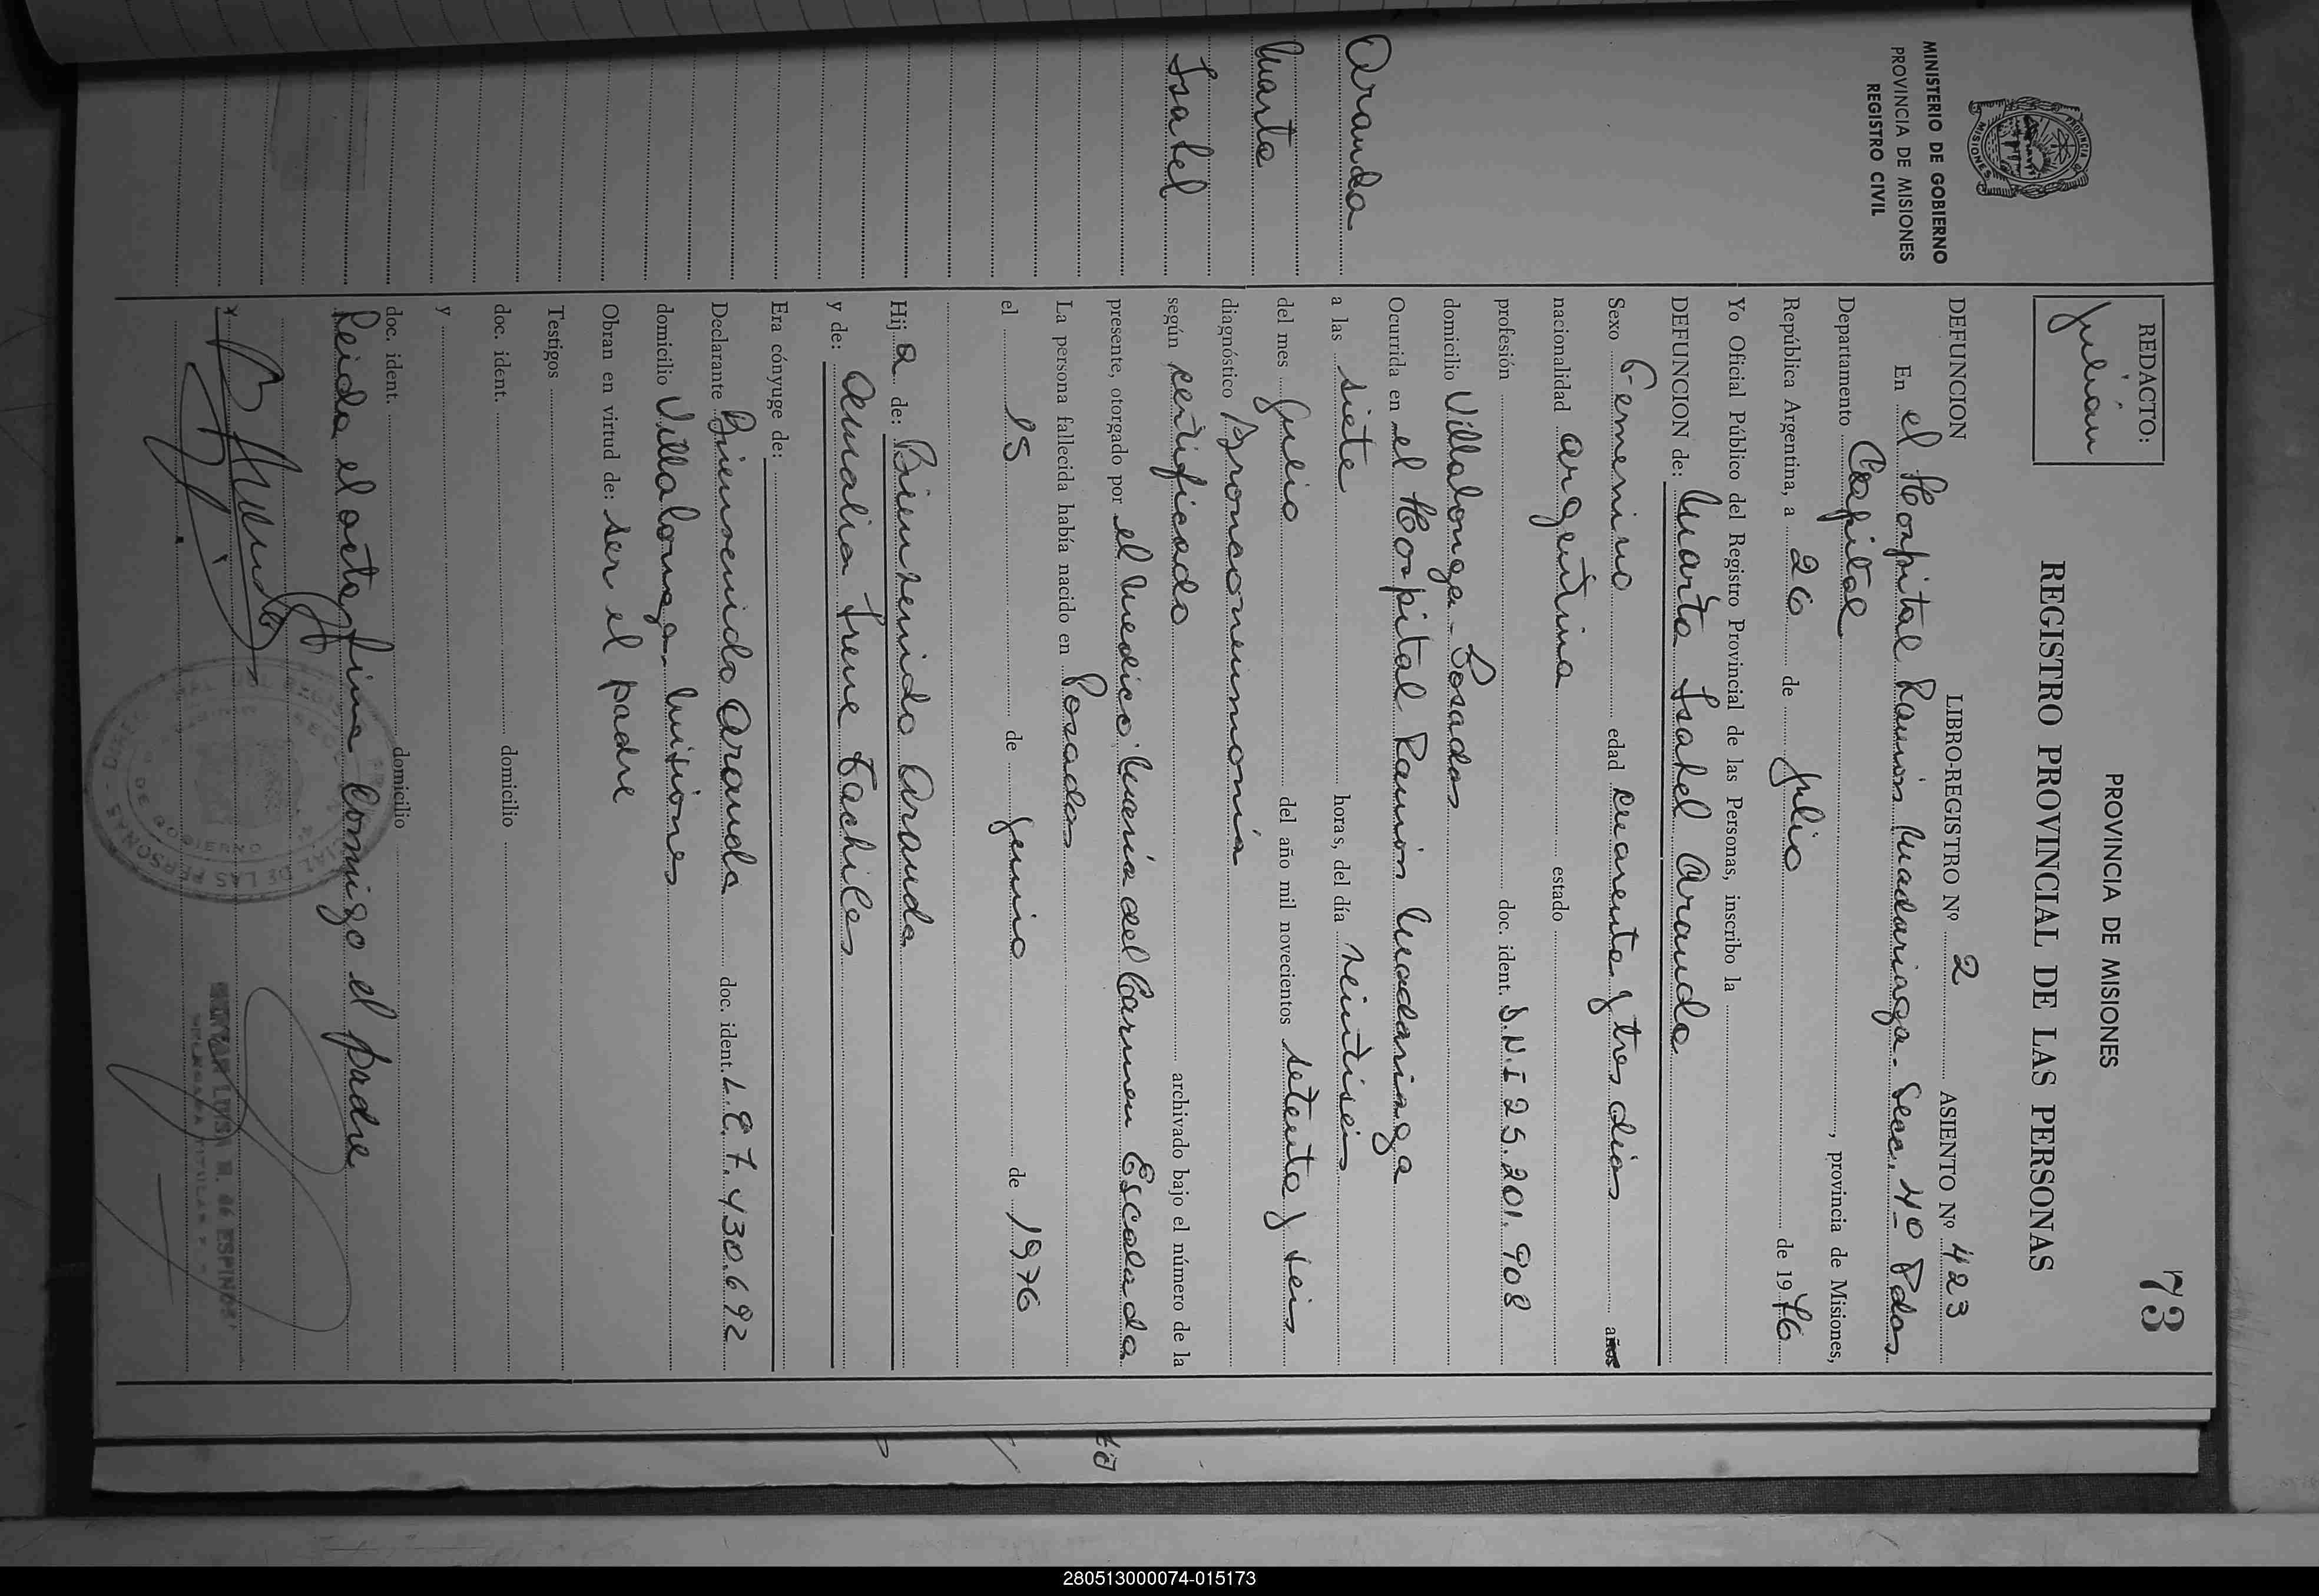 73
MINISTERIO DE GOBIERNO
PROVINCIA DE MISIONES
REGISTRO CIVIL
PROVINCIA
MISIONES
REDACTO:
Julián
PROVINCIA DE MISIONES
REGISTRO PROVINCIAL DE LAS PERSONAS
Aranda
Marta
Isabel
DEFUNCION LIBRO-REGISTRO Nº 2 ASIENTO Nº 423
En el Hospital Ramón Madariaga - Secc. 4º Pdas
Departamento Capital, provincia de Misiones,
República Argentina, a 26 de Julio de 1976
Yo Oficial Público del Registro Provincial de las Personas, inscribo la
DEFUNCION de: Marta Isabel Aranda
Sexo Femenino edad cuarenta y tres días años
nacionalidad argentina estado
profesión doc. ident. D.N.I 25.201.908
domicilio Villalonga - Posadas
Ocurrida en el Hospital Ramón Madariaga
a las siete horas, del día veintiseis
del mes Julio del año mil novecientos setenta y seis
diagnóstico Bronconeumonía
según certificado archivado bajo el número de la
presente, otorgado por el Medico: María del Carmen Escalada
La persona fallecida había nacido en Posadas
el 15 de Junio de 1976
Hija de: Bienvenido Aranda
y de: Amalia Irene Tachiles
Era cónyuge de:
Declarante Bienvenido Aranda doc. ident. L.E.7.430.692
domicilio Villalonga - Misiones
Obran en virtud de: ser el padre
Testigos
doc. ident. domicilio
y
doc. ident. domicilio
Leida el acta firma conmigo el padre
DE LAS PERSONAS
LUISA N. de ESPINOZA
280513000074-015173